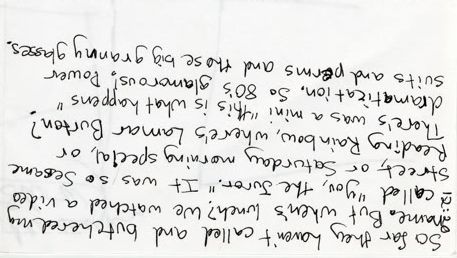 So far they, haven't called and butchered my
name. But when's lunch? We watched a video
called "you, the Juror." It was so Sesame
Street, or Saturday morning special, or
Reading Rainbow, where's Lamar Burton?
There's was a mini "this is what happens"
dramatization. So 80's glamorous. Power
suits and perms and those big granny glasses.